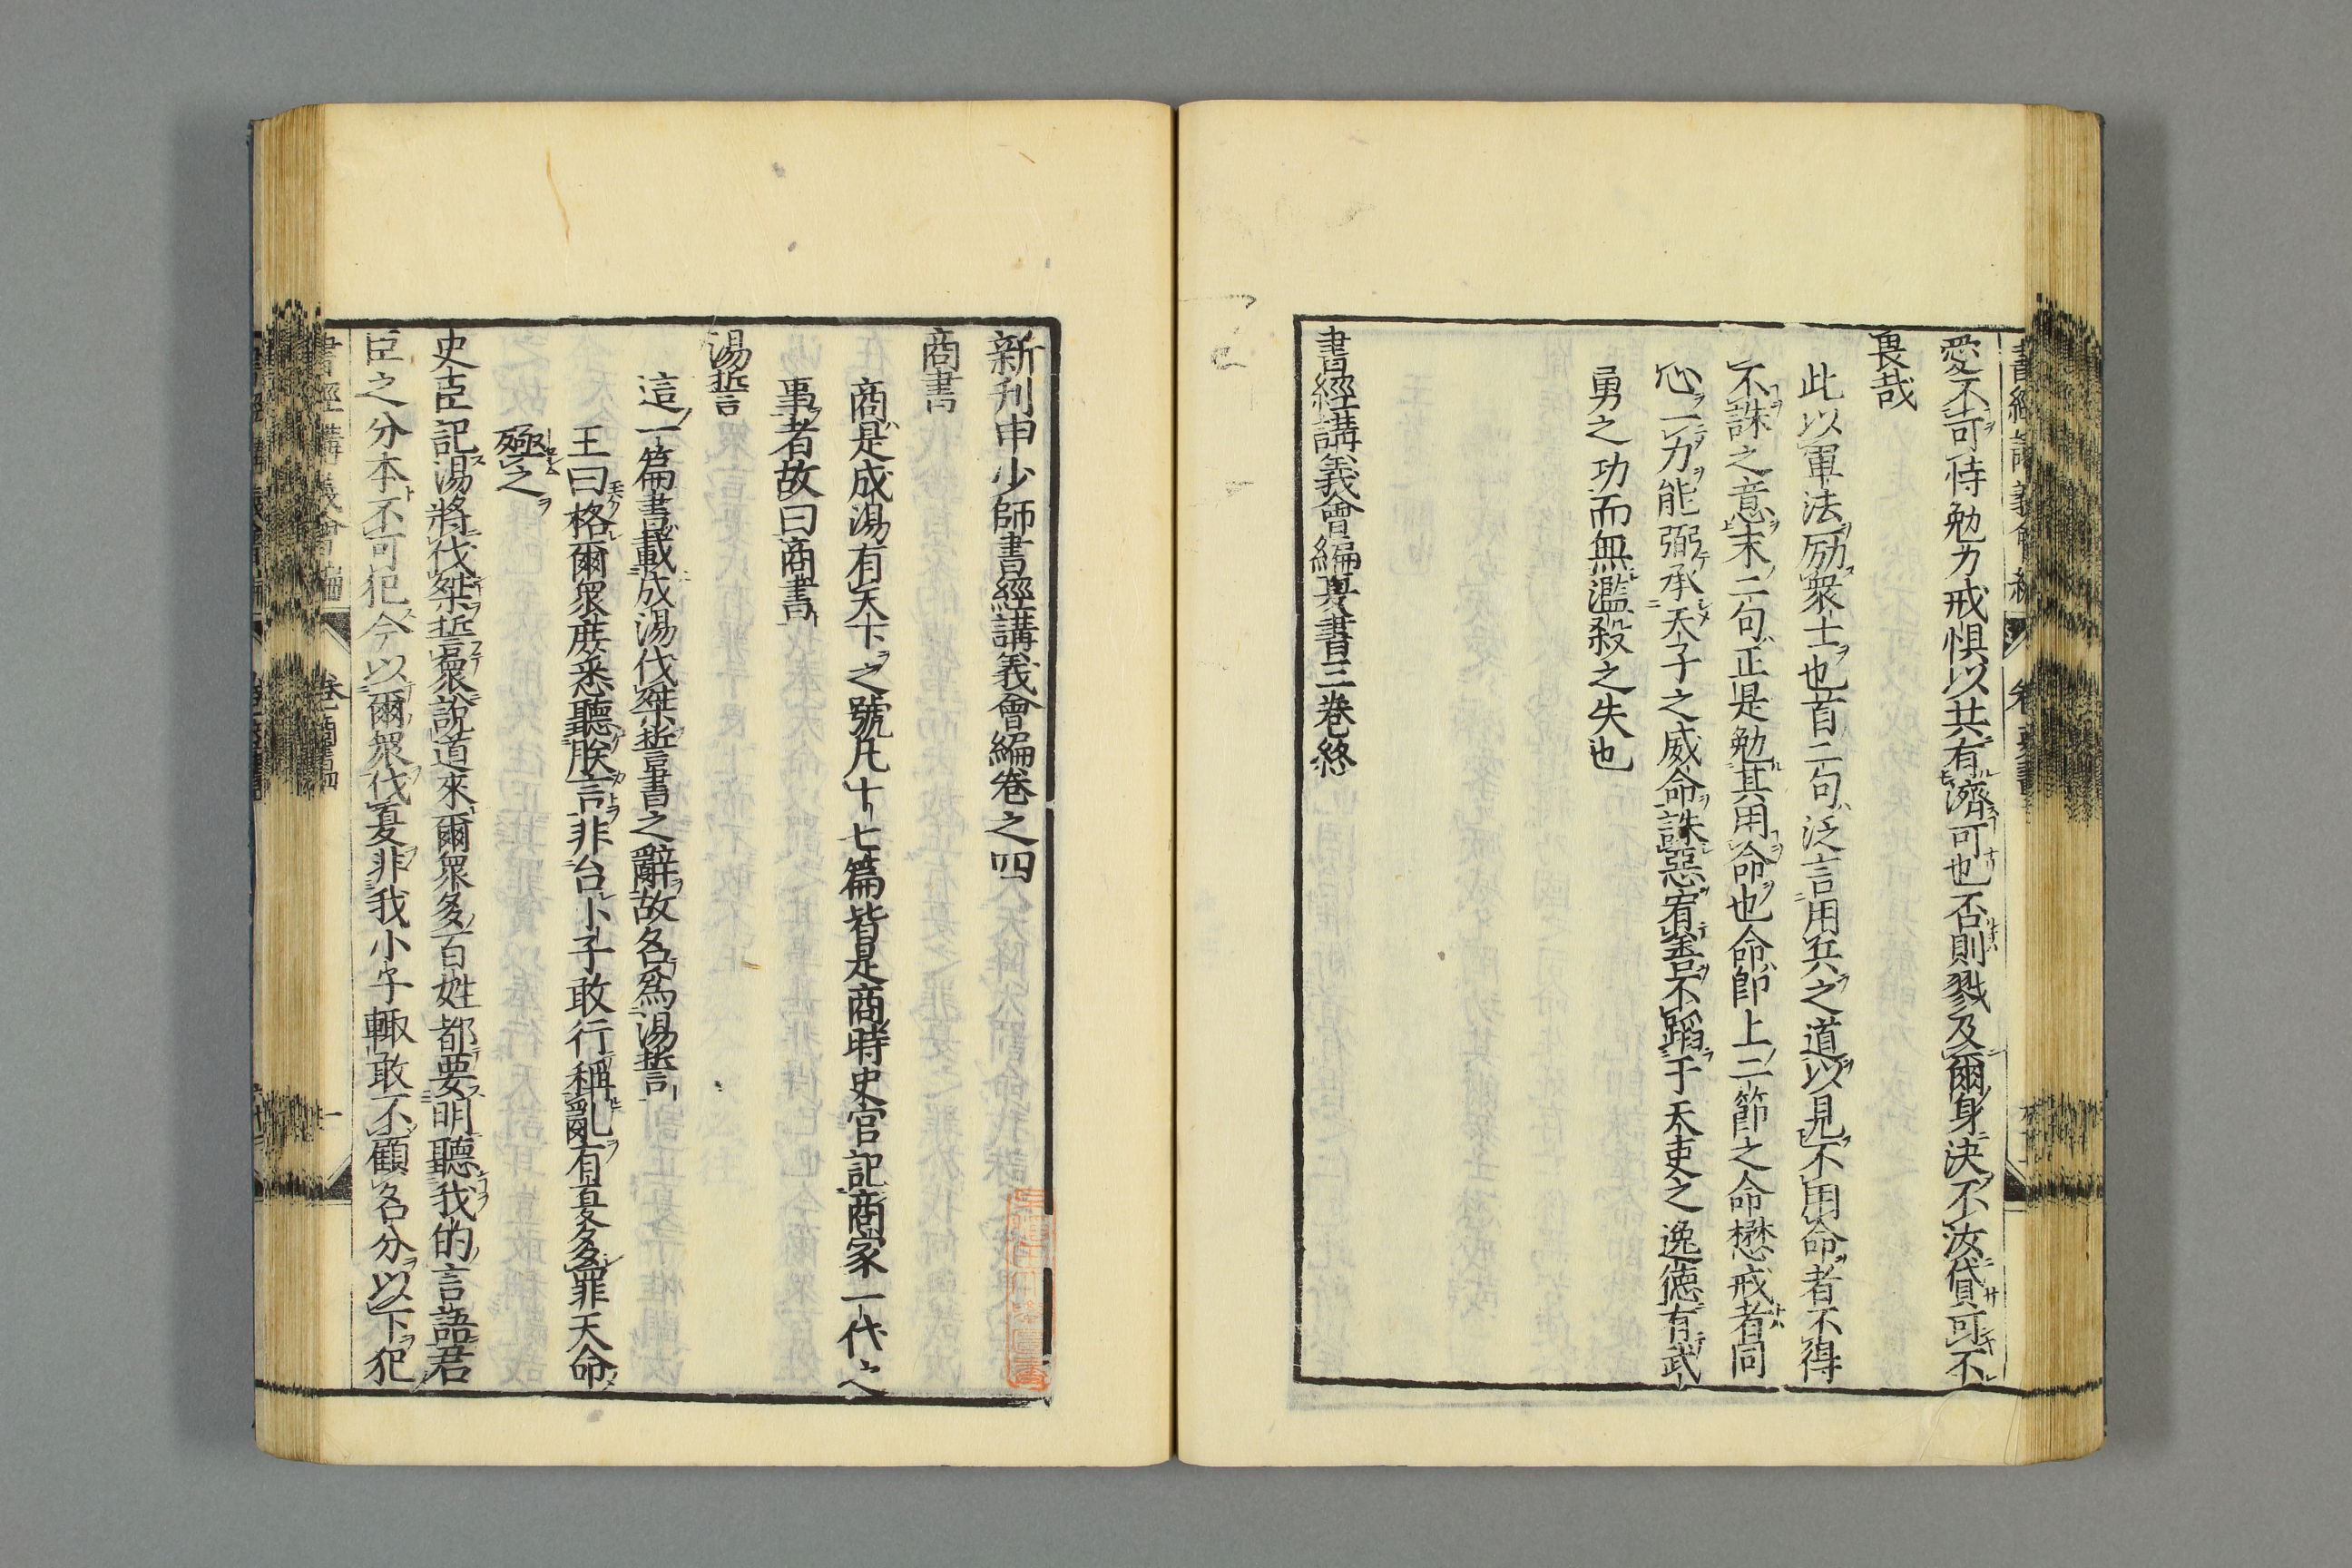 愛不可恃勉力戒惧以共有濟可也否則戮及爾身決不汝貸可不
畏哉
此以軍法励衆士也首二句泛言用兵之道以見不用命者不得
不誅之意末二句正是勉其用命也命即上二節之命懋戒者同
心一力能弼承天子之威命誅惡宥善不蹈于天吏之逸德有武
勇之功而無濫殺之失也
書經講義會編夏書三卷終
新刊申少師書經講義會編卷之四
商書
商是成湯有天下之號凡十七篇皆是商時史官記商家一代之
事者故曰商書
湯誓
這一篇書載成湯伐桀誓書之辭故名爲湯誓
王曰格爾衆庶悉聽朕言非台小子敢行稱亂有夏多罪天命
殛之
史臣記湯將伐桀誓衆說道來爾衆多百姓都要明聽我的言語君
臣之分本不可犯今以爾衆伐夏非我小子輙敢不顧名分以下犯
書經講義會編 卷四商書 一